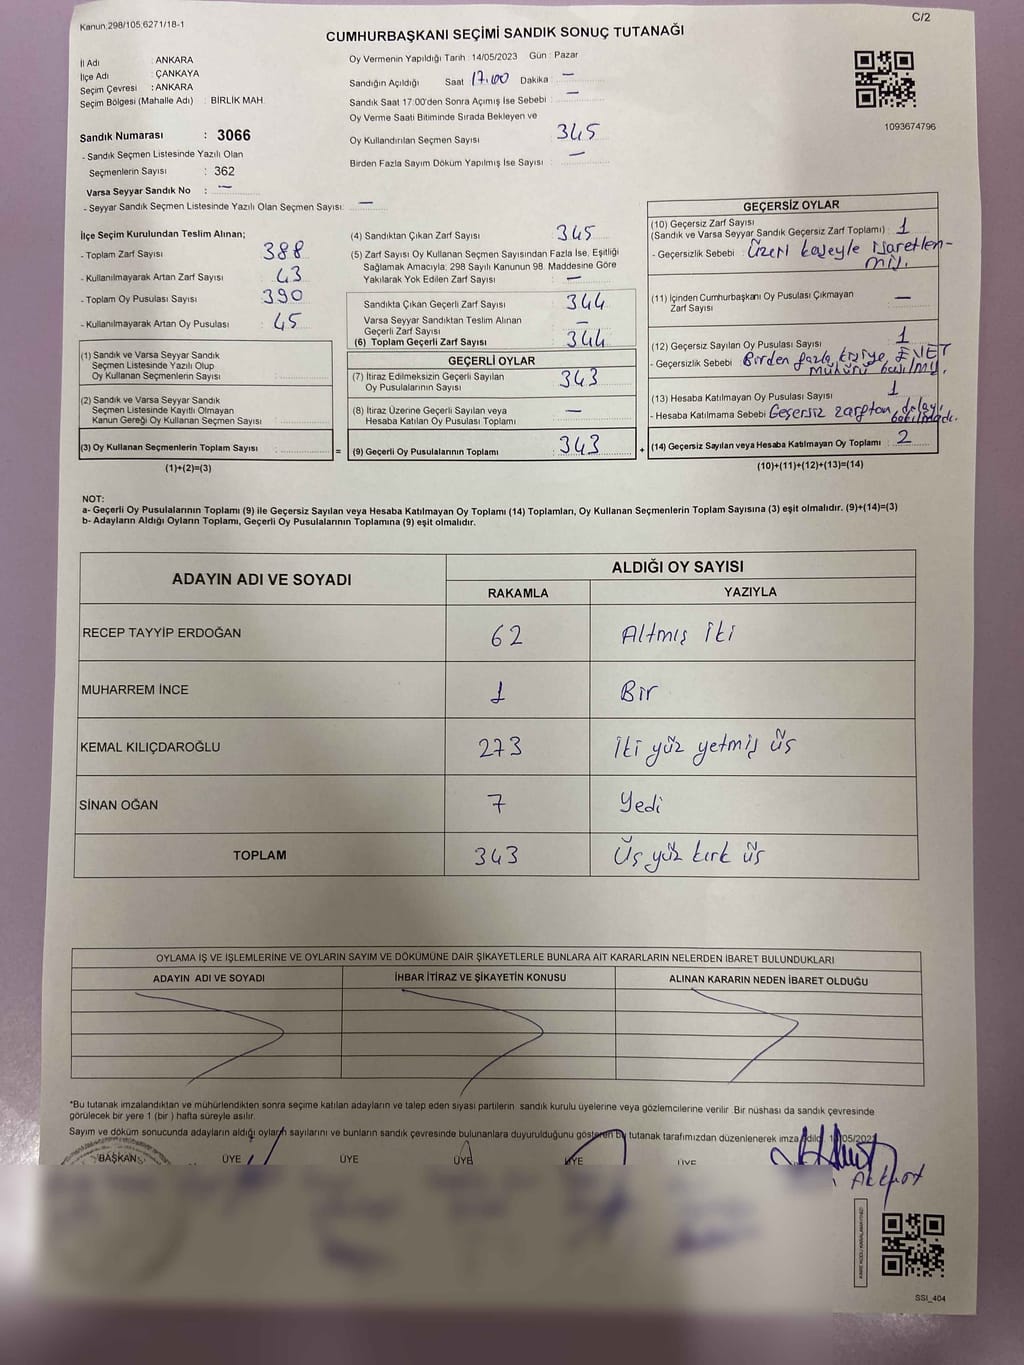 Kanun.298/105,6271/18-1
C/2
CUMHURBAŞKANI SEÇİMİ SANDIK SONUÇ TUTANAĞI
İl Adı : ANKARA
İlçe Adı : ÇANKAYA
Seçim Çevresi : ANKARA
Seçim Bölgesi (Mahalle Adı) : BİRLİK MAH.
Sandık Numarası : 3066
- Sandık Seçmen Listesinde Yazılı Olan
Seçmenlerin Sayısı : 362
Varsa Seyyar Sandık No : —
- Seyyar Sandık Seçmen Listesinde Yazılı Olan Seçmen Sayısı: —
Oy Vermenin Yapıldığı Tarih : 14/05/2023 Gün : Pazar
Sandığın Açıldığı Saat 17.00 Dakika —
Sandık Saat 17:00'den Sonra Açımış İse Sebebi : —
Oy Verme Saati Bitiminde Sırada Bekleyen ve
Oy Kullandırılan Seçmen Sayısı 345
Birden Fazla Sayım Döküm Yapılmış İse Sayısı : —
1093674796
İlçe Seçim Kurulundan Teslim Alınan;
- Toplam Zarf Sayısı 388
- Kullanılmayarak Artan Zarf Sayısı 43
- Toplam Oy Pusulası Sayısı 390
- Kullanılmayarak Artan Oy Pusulası 45
(1) Sandık ve Varsa Seyyar Sandık
Seçmen Listesinde Yazılı Olup
Oy Kullanan Seçmenlerin Sayısı :
(2) Sandık ve Varsa Seyyar Sandık
Seçmen Listesinde Kayıtlı Olmayan
Kanun Gereği Oy Kullanan Seçmen Sayısı :
(3) Oy Kullanan Seçmenlerin Toplam Sayısı :
(1)+(2)=(3)
(4) Sandıktan Çıkan Zarf Sayısı 345
(5) Zarf Sayısı Oy Kullanan Seçmen Sayısından Fazla İse, Eşitliği
Sağlamak Amacıyla, 298 Sayılı Kanunun 98. Maddesine Göre
Yakılarak Yok Edilen Zarf Sayısı : —
Sandıkta Çıkan Geçerli Zarf Sayısı 344
Varsa Seyyar Sandıktan Teslim Alınan
Geçerli Zarf Sayısı —
(6) Toplam Geçerli Zarf Sayısı 344
GEÇERLİ OYLAR
(7) İtiraz Edilmeksizin Geçerli Sayılan
Oy Pusulalarının Sayısı 343
(8) İtiraz Üzerine Geçerli Sayılan veya
Hesaba Katılan Oy Pusulası Toplamı —
= (9) Geçerli Oy Pusulalarının Toplamı 343
GEÇERSİZ OYLAR
(10) Geçersiz Zarf Sayısı
(Sandık ve Varsa Seyyar Sandık Geçersiz Zarf Toplamı) : 1
- Geçersizlik Sebebi : Üzeri kaşeyle işaretlen-
miş.
(11) İçinden Cumhurbaşkanı Oy Pusulası Çıkmayan
Zarf Sayısı —
(12) Geçersiz Sayılan Oy Pusulası Sayısı 1
- Geçersizlik Sebebi : Birden fazla kişiye EVET
mührü basılmış.
(13) Hesaba Katılmayan Oy Pusulası Sayısı 1
- Hesaba Katılmama Sebebi Geçersiz zarftan dolayı
bakılmadı.
+ (14) Geçersiz Sayılan veya Hesaba Katılmayan Oy Toplamı : 2
(10)+(11)+(12)+(13)=(14)
NOT:
a- Geçerli Oy Pusulalarının Toplamı (9) ile Geçersiz Sayılan veya Hesaba Katılmayan Oy Toplamı (14) Toplamları, Oy Kullanan Seçmenlerin Toplam Sayısına (3) eşit olmalıdır. (9)+(14)=(3)
b- Adayların Aldığı Oyların Toplamı, Geçerli Oy Pusulalarının Toplamına (9) eşit olmalıdır.
ADAYIN ADI VE SOYADI
ALDIĞI OY SAYISI
RAKAMLA YAZIYLA
RECEP TAYYİP ERDOĞAN 62 Altmış iki
MUHARREM İNCE 1 Bir
KEMAL KILIÇDAROĞLU 273 İki yüz yetmiş üç
SİNAN OĞAN 7 Yedi
TOPLAM 343 Üç yüz kırk üç
OYLAMA İŞ VE İŞLEMLERİNE VE OYLARIN SAYIM VE DÖKÜMÜNE DAİR ŞİKAYETLERLE BUNLARA AİT KARARLARIN NELERDEN İBARET BULUNDUKLARI
ADAYIN ADI VE SOYADI
İHBAR İTİRAZ VE ŞİKAYETİN KONUSU
ALINAN KARARIN NEDEN İBARET OLDUĞU
*Bu tutanak imzalandıktan ve mühürlendikten sonra seçime katılan adayların ve talep eden siyasi partilerin sandık kurulu üyelerine veya gözlemcilerine verilir. Bir nüshası da sandık çevresinde
görülecek bir yere 1 (bir ) hafta süreyle asılır.
Sayım ve döküm sonucunda adayların aldığı oyların sayılarını ve bunların sandık çevresinde bulunanlara duyurulduğunu gösteren bu tutanak tarafımızdan düzenlenerek imza edildi.
BAŞKAN ÜYE ÜYE ÜYE ÜYE ÜYE
SSI_404